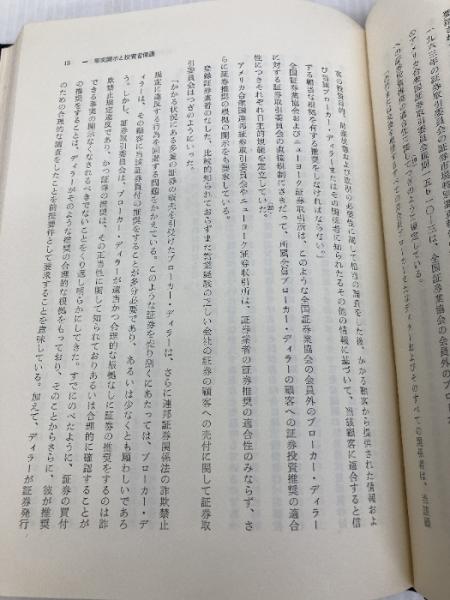 および
は、全国証券業協会の会員外の
すべての関係者は、当該顧
客の投資目的、財産状態および取引の必要性に関して相当の調査をした後、かかる顧客から提供された情報およ
び当該ブローカー・ディーラーまたはその関係者に知られたるその他の情報に基づいて、当該顧客に適合すると信
ずる相当な根拠を有する推奨をしなければならない。」
全国証券業協会およびニューヨーク証券取引所は、このような全国証券業協会の会員外のブローカー・ディーラー
に対する証券取引委員会の直接規制にさきだって、所属会員ブローカー・ディーラーの顧客への証券投資推奨の適合
性につきそれぞれ自主的規範を定立していた。
アメリカ合衆国連邦証券取引委員会やニューヨーク証券取引所は、証券業者の証券推奨の適合性のみならず、さ
らに証券推奨の根拠の開示をも要求している。
登録証券業者のなした、比較的知られておらずまた営業経験の乏しい会社の証券の顧客への売付に関して証券取
引委員会はつぎのようにいった。
「かかる状況にある多量の証券の販売を引受けたブローカー・ディーラーは、さらに連邦証券関係法の詐欺禁止
規定に違反する行為を回避する問題をかかえている。このような証券を売り捌くにあたっては、ブローカー・デ
ィーラーは、その顧客に当該証券買付の推奨をすることが多分必要であり、あるいは少なくとも願わしいであろ
う。しかし、証券取引委員会は、ブローカー・ディーラが適当かつ合理的な根拠なしに証券の推奨をするのは詐
欺禁止規定違反であり、かつ証券の推奨は、その正当性に関して知られておりあるいは合理的に確認することが
できる事実の開示なくなされるべきでないことをくり返し明らかにしてきた。すでにのべたように、証券の買付
の推奨をすることは、ディーラがそのような推奨の合理的な根拠をもっており、そのことからさらに、彼が推奨
のための合理的な調査をしたことを前提要件として要求することを意味している。加えて、ディーラが証券発行
15 一 事実開示と投資者保護